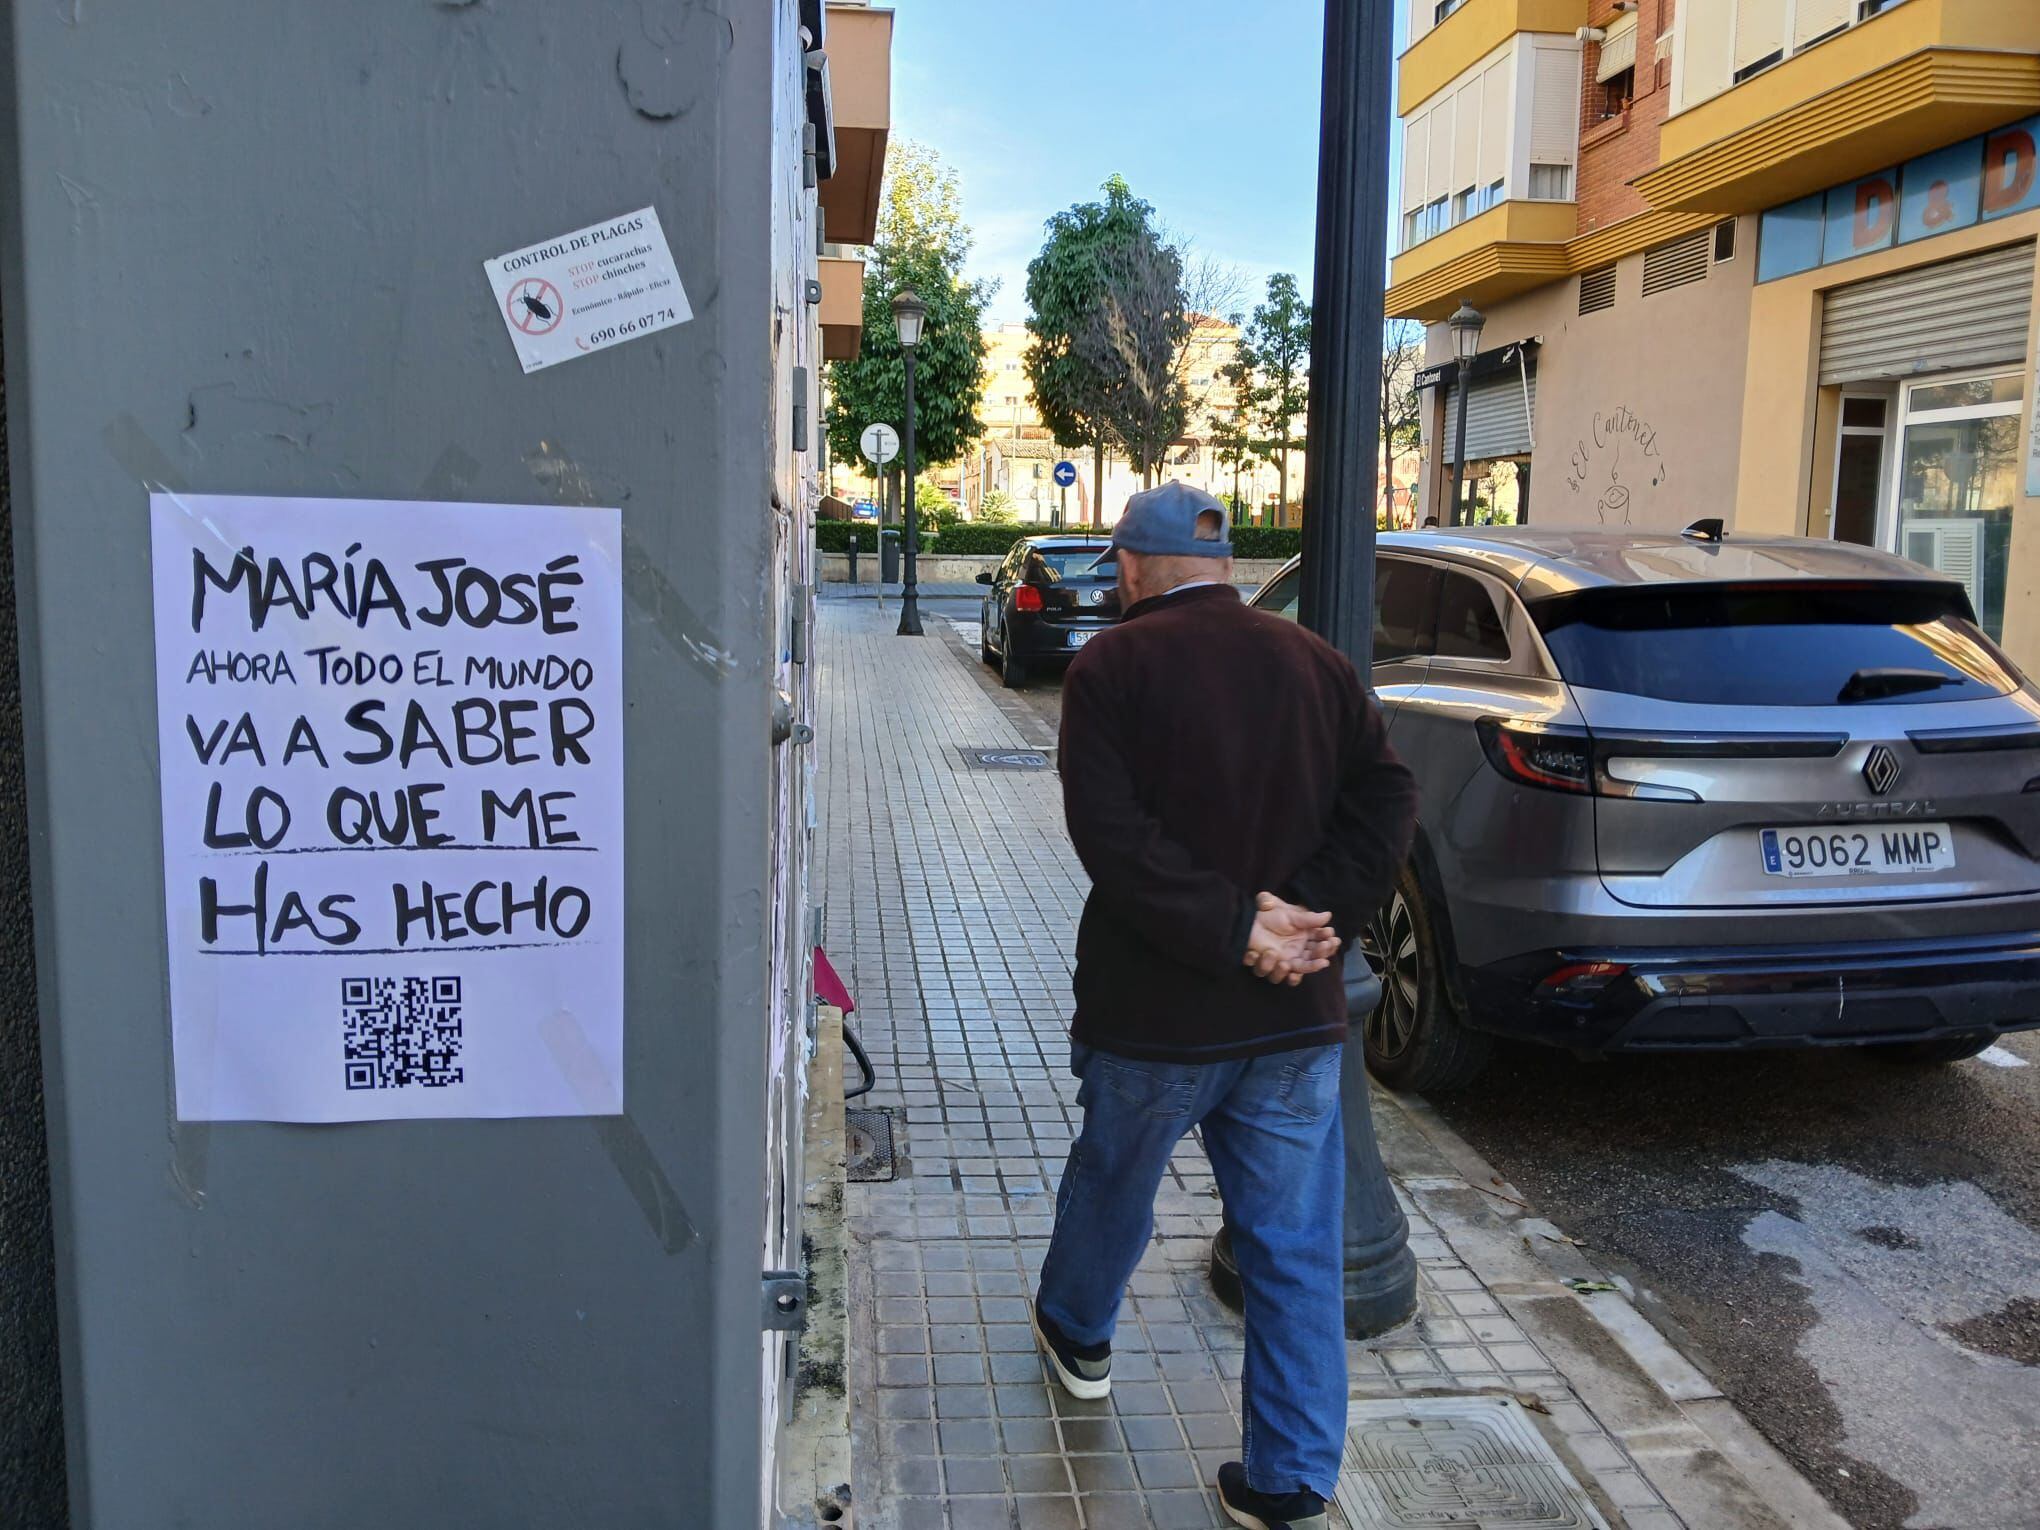 CONTROL DE PLAGAS
STOP cucarachas
STOP chinches
Económico - Rápido - Eficaz
690 66 07 74
MARÍA JOSÉ
AHORA TODO EL MUNDO
VA A SABER
LO QUE ME
HAS HECHO
POLO
El Cantonet
El Cantonet
D & D
AUSTRAL
E 9062 MMP